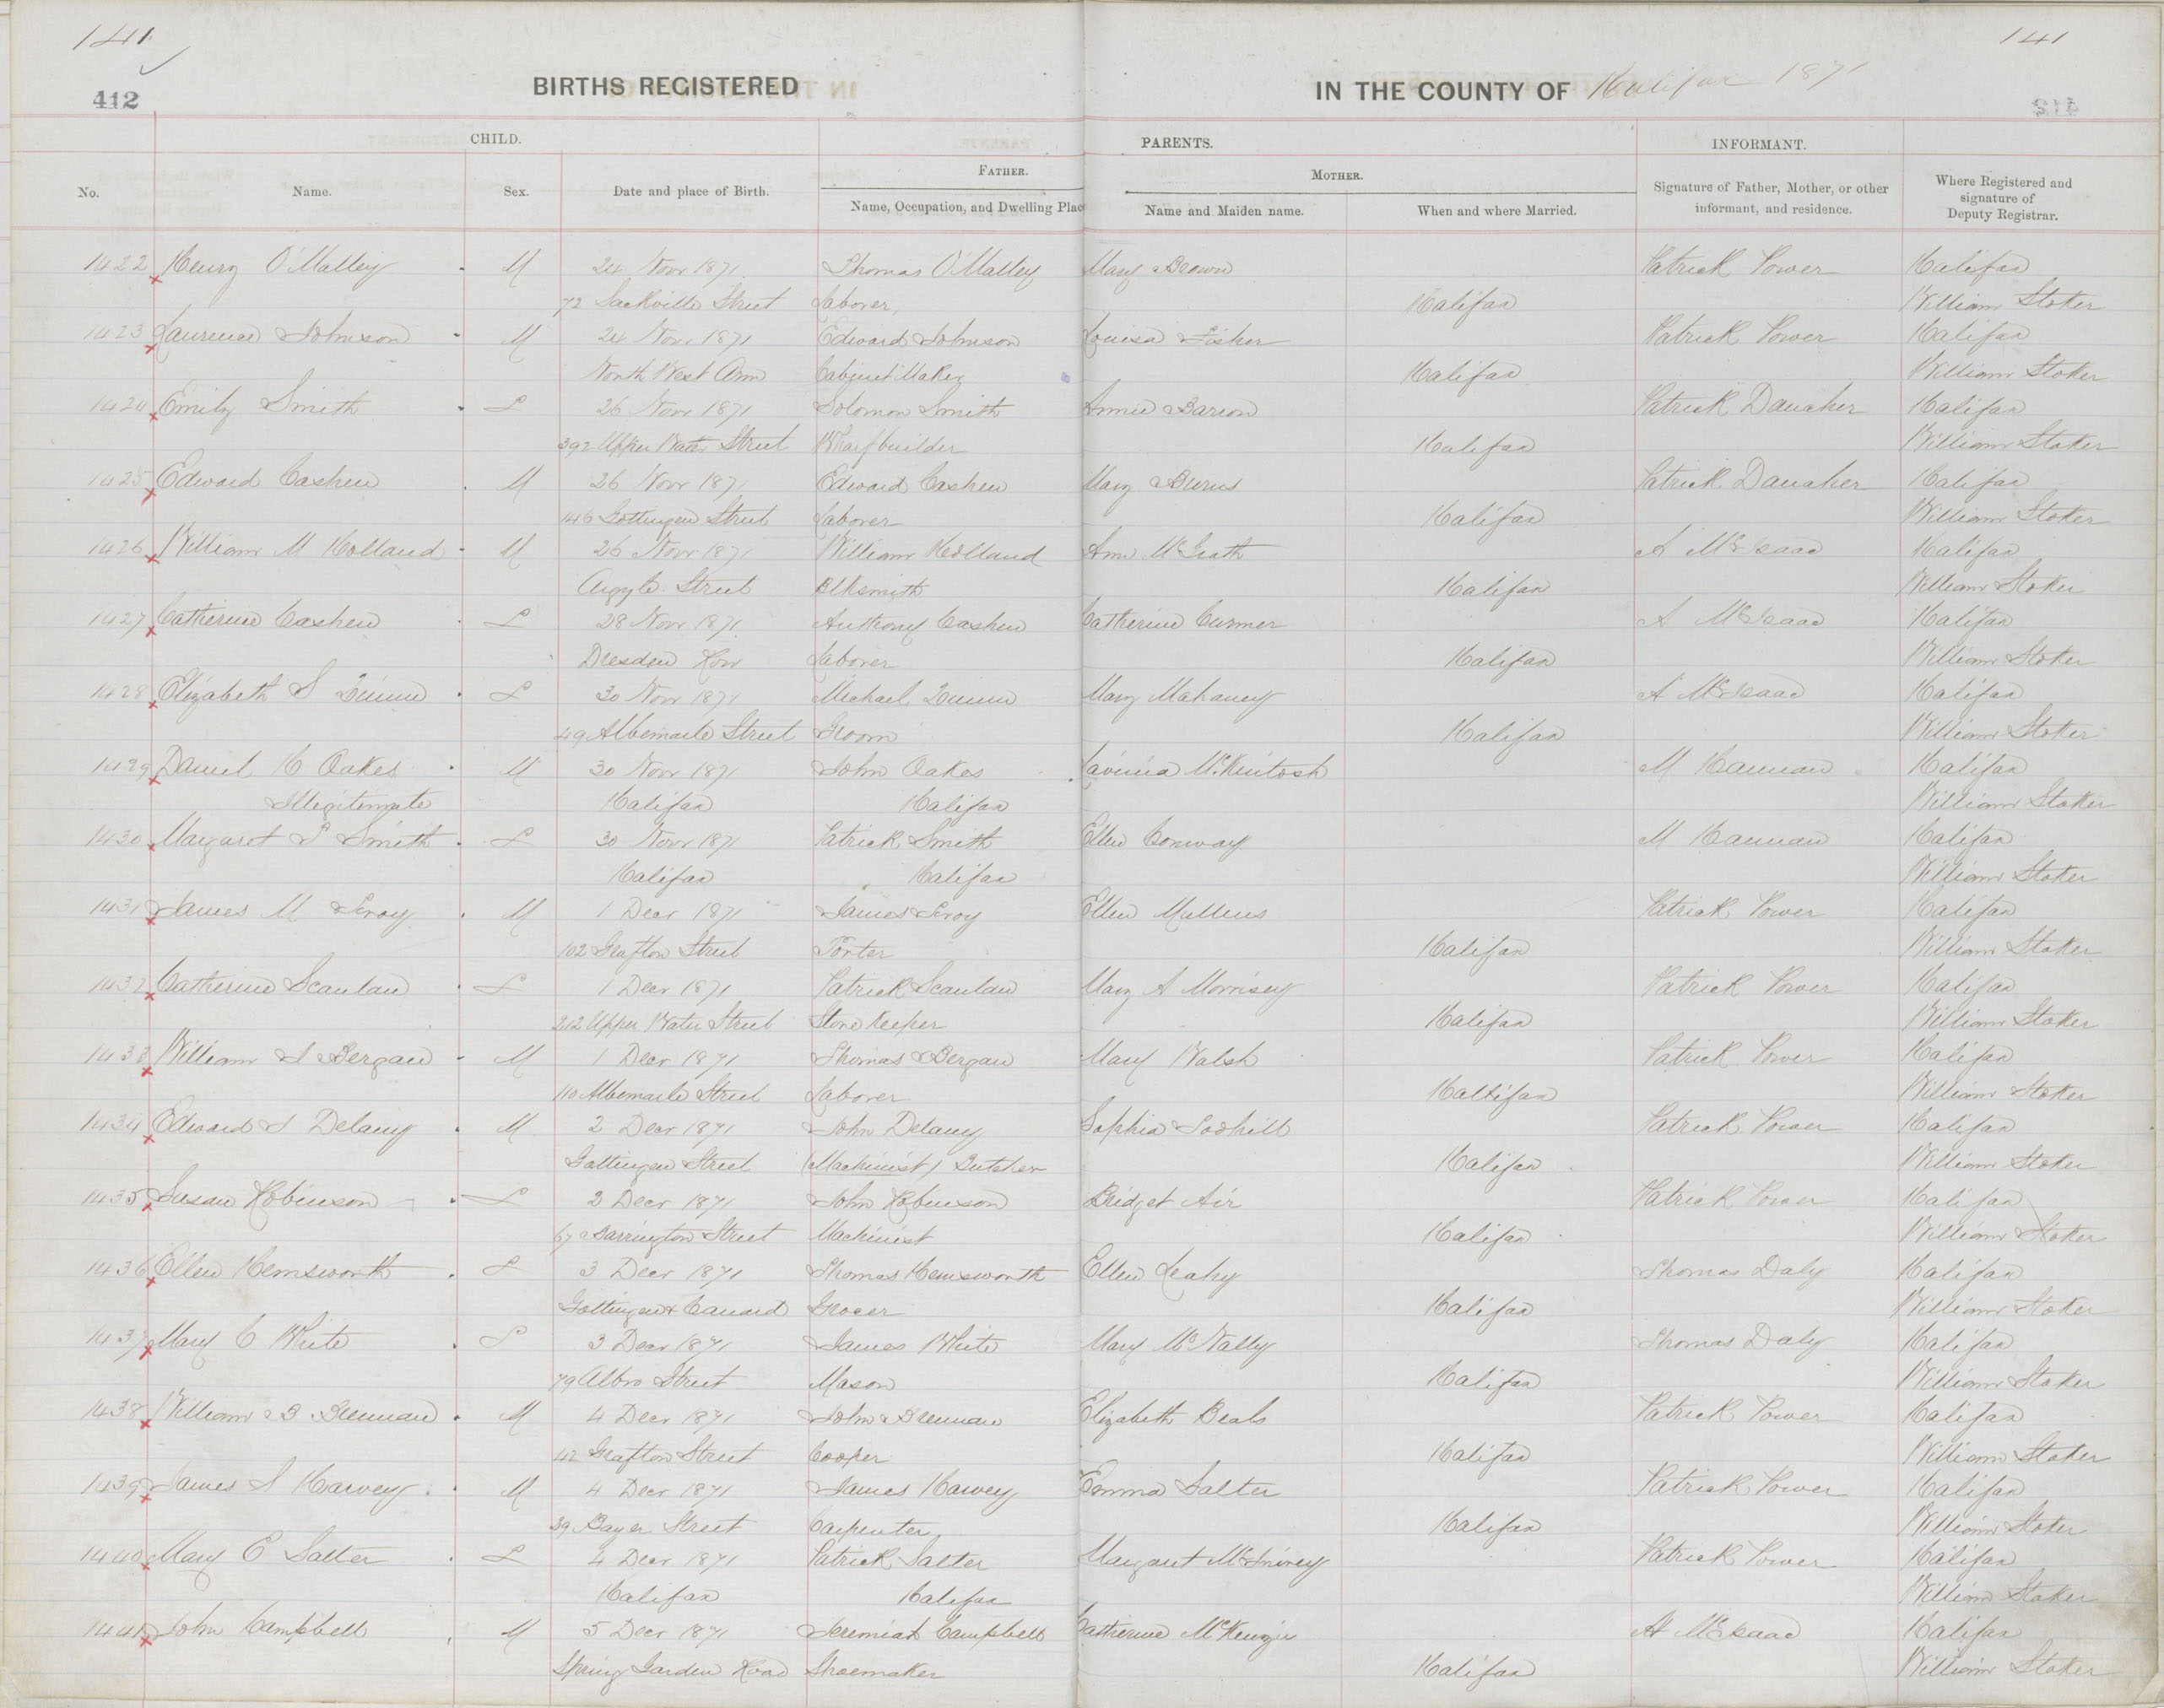 141 141
412 BIRTHS REGISTERED IN THE COUNTY OF Halifax 1871
CHILD. PARENTS. INFORMANT.
No. Name. Sex. Date and place of Birth. FATHER. Name, Occupation, and Dwelling Plac MOTHER. Name and Maiden name. When and where Married. Signature of Father, Mother, or other informant, and residence. Where Registered and signature of Deputy Registrar.
1422 Henry O'Malley M 24 Novr 1871 Thomas O'Malley Mary Brown Patrick Power Halifax
72 Sackville Street Laborer Halifax William Stoker
1423 Laurence Johnson M 24 Novr 1871 Edward Johnson Louisa Fisher Patrick Power Halifax
North West Arm Cabinet Maker Halifax William Stoker
1424 Emily Smith F 26 Novr 1871 Solomon Smith Annie Barron Patrick Danaher Halifax
392 Upper Water Street Wharfbuilder Halifax William Stoker
1425 Edward Cashen M 26 Novr 1871 Edward Cashen Mary Burns Patrick Danaher Halifax
146 Gottingen Street Laborer Halifax William Stoker
1426 William M Holland M 26 Novr 1871 William Holland Ann McGrath A McIsaac Halifax
Argyle Street Blksmith Halifax William Stoker
1427 Catherine Cashen F 28 Novr 1871 Anthony Cashen Catherine A McIsaac Halifax
Dresden Row Laborer Halifax William Stoker
1428 Elizabeth S Quinn F 30 Novr 1871 Michael Quinn Mary Mahaney A McIsaac Halifax
49 Albemarle Street Groom Halifax William Stoker
1429 Daniel H Oakes M 30 Novr 1871 John Oakes Lavinia McKintosh M Hannan Halifax
Illegitimate Halifax Halifax William Stoker
1430 Margaret Smith F 30 Novr 1871 Patrick Smith Ellen Conway M Hannan Halifax
Halifax Halifax William Stoker
1431 James M Leroy M 1 Decr 1871 James Leroy Ellen Mullens Patrick Power Halifax
102 Grafton Street Porter Halifax William Stoker
1432 Catherine Scanlan F 1 Decr 1871 Patrick Scanlan Mary A Morrisey Patrick Power Halifax
212 Upper Water Street Store Keeper Halifax William Stoker
1433 William Bergan M 1 Decr 1871 Thomas Bergan Mary Walsh Patrick Power Halifax
110 Albemarle Street Laborer Halifax William Stoker
1434 Edward Delany M 2 Decr 1871 John Delany Sophia Patrick Power Halifax
Gottingen Street (Machinist) Butcher Halifax William Stoker
1435 Susan Robinson F 3 Decr 1871 John Robinson Bridget Air Patrick Power Halifax
67 Barrington Street Machinist Halifax William Stoker
1436 Ellen Hemsworth F 3 Decr 1871 Thomas Hemsworth Ellen Leahy Thomas Daly Halifax
Gottingen & Cunard Grocer Halifax William Stoker
1437 Mary C White F 3 Decr 1871 James White Mary McNally Thomas Daly Halifax
79 Albro Street Mason Halifax William Stoker
1438 William B Brennan M 4 Decr 1871 John Brennan Elizabeth Beals Patrick Power Halifax
42 Grafton Street Cooper Halifax William Stoker
1439 James Harvey M 4 Decr 1871 James Harvey Emma Salter Patrick Power Halifax
39 Street Carpenter Halifax William Stoker
1440 Mary E Salter F 4 Decr 1871 Patrick Salter Margaret Patrick Power Halifax
Halifax Halifax William Stoker
1441 John Campbell M 5 Decr 1871 Jeremiah Campbell Catherine McKenzie A McIsaac Halifax
Spring Garden Road Shoemaker Halifax William Stoker